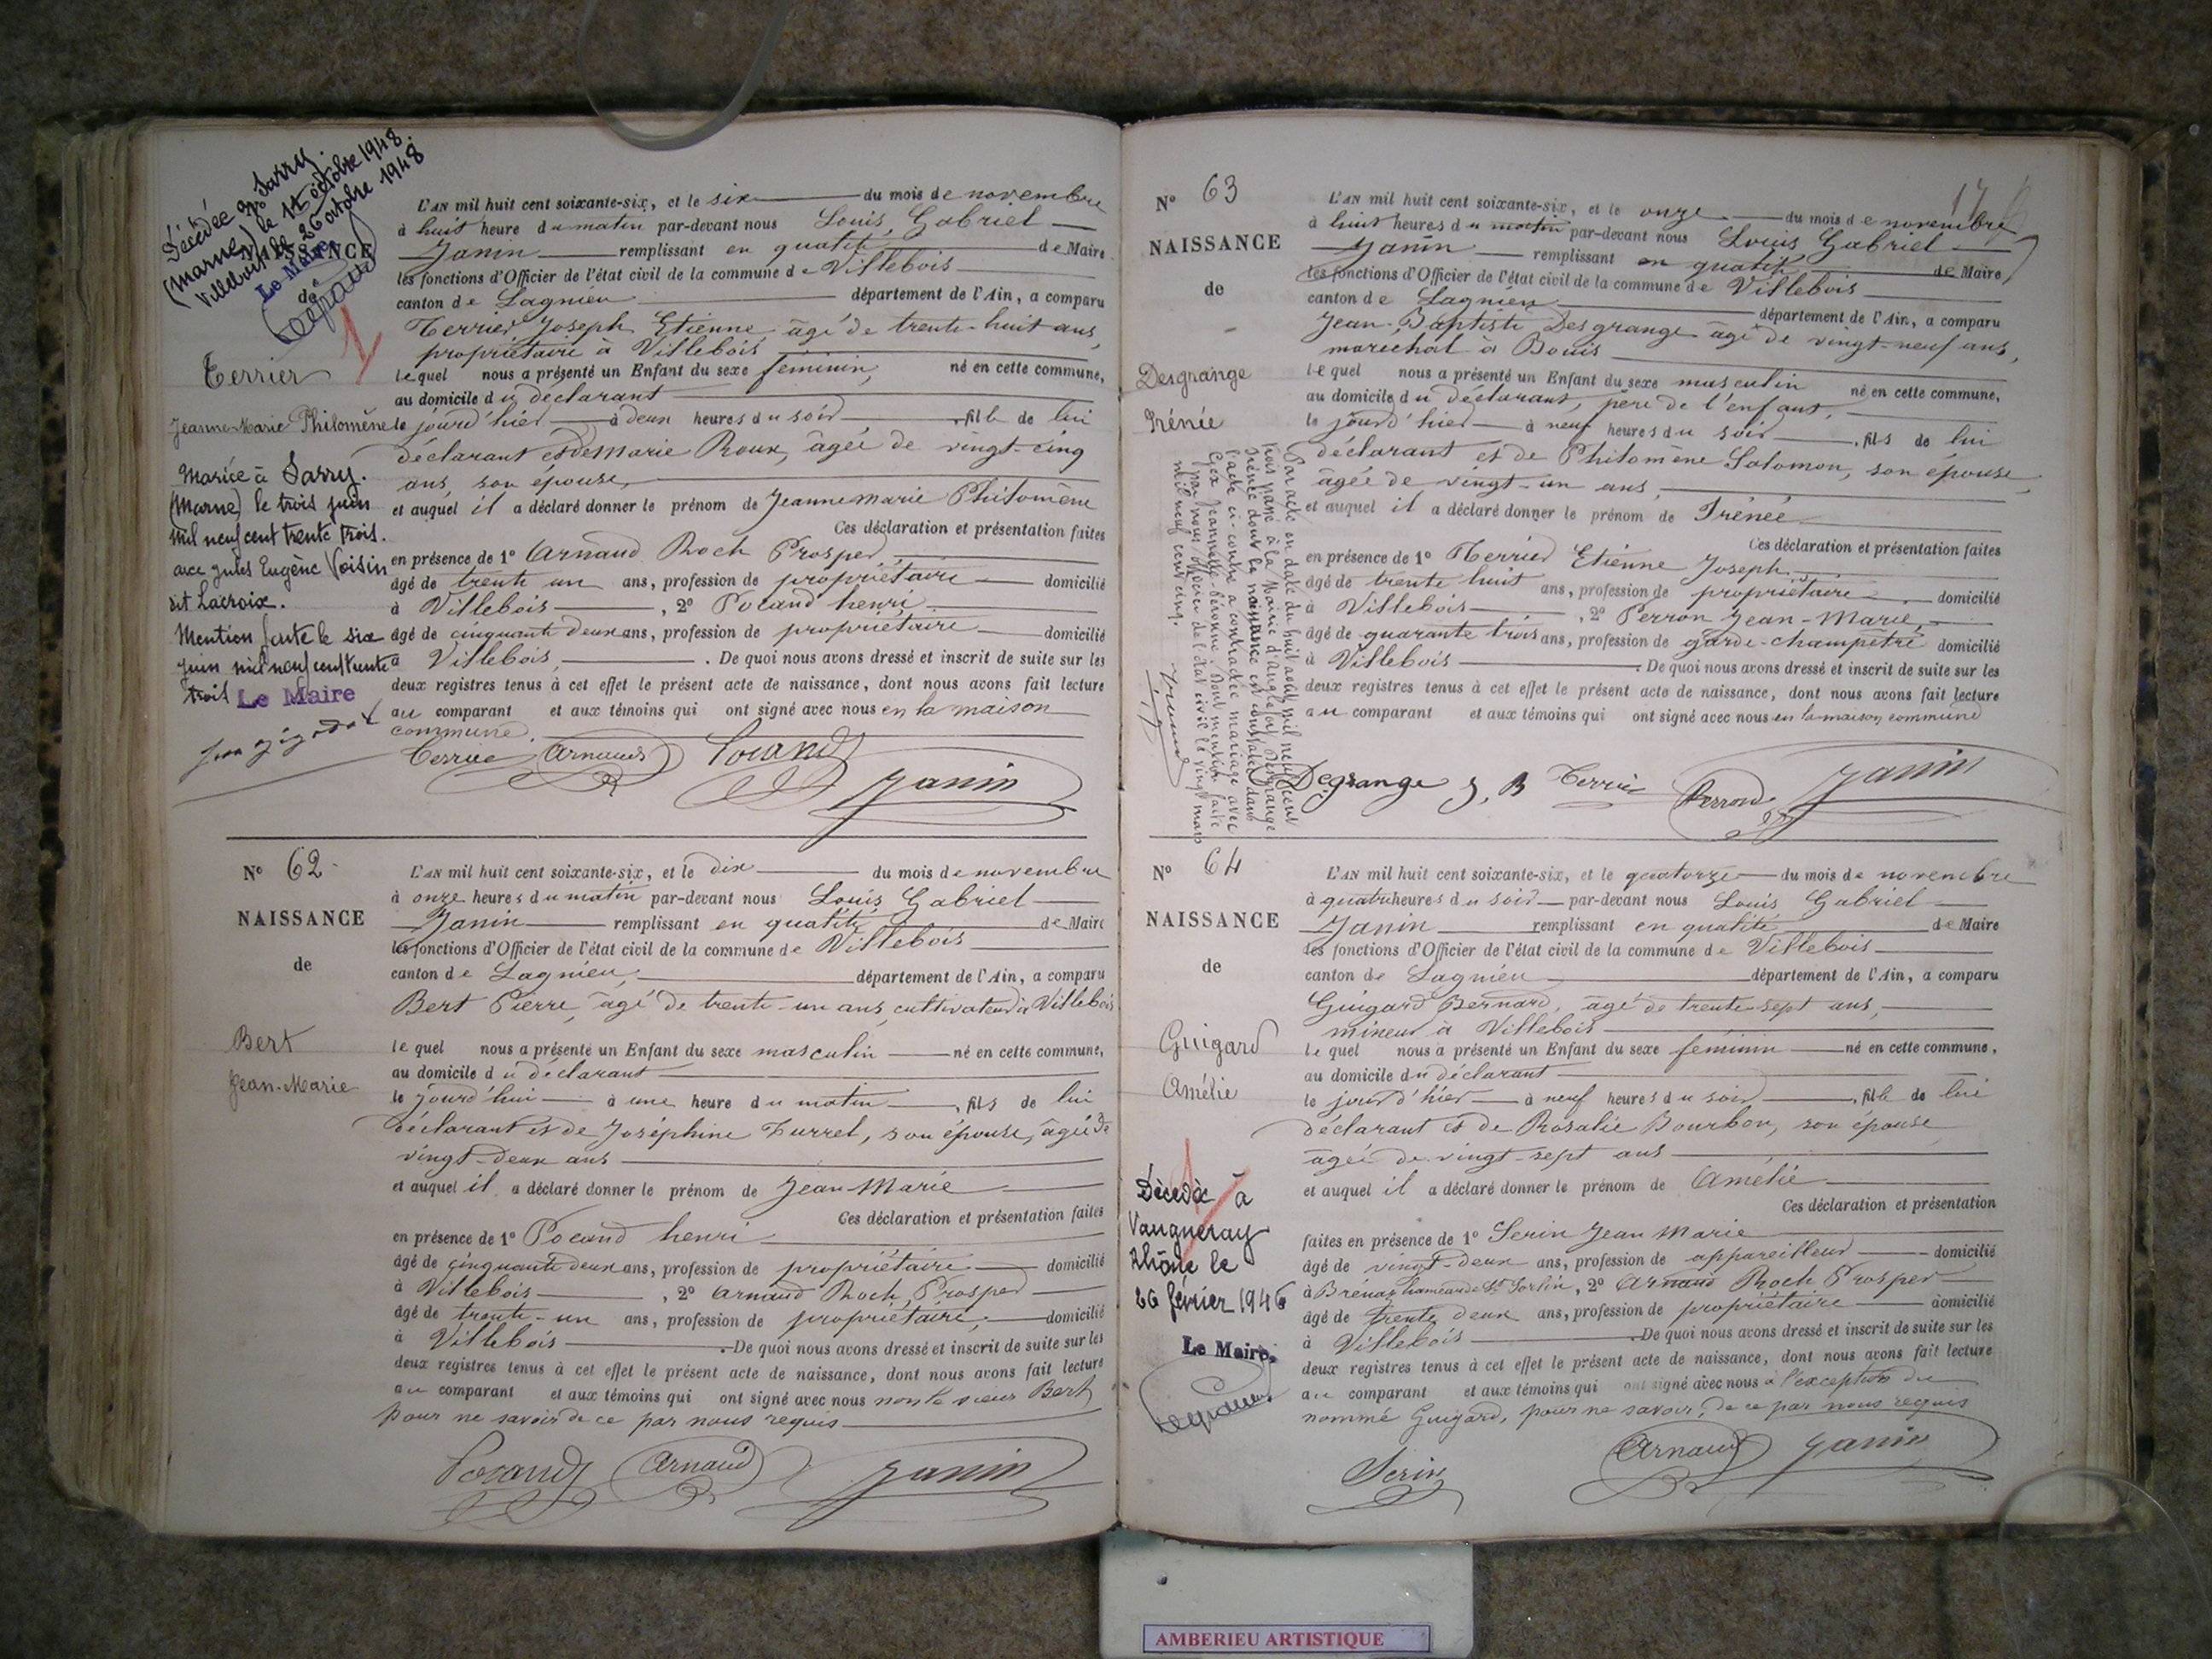 Décédée à Sarry.
(Marne) le 1er octobre 1948.
Villebois le 26 octobre 1948
Le Maire
NAISSANCE
de
Terrier
Jeanne-Marie Philomène
Mariée à Sarry.
(Marne) le trois juin
mil neuf cent trente trois.
avec Jules Eugène Voisin
dit Lacroix.
Mention faite le six
juin mil neuf cent trente
trois Le Maire
L'AN mil huit cent soixante-six, et le six du mois de novembre
à huit heure du matin par-devant nous Louis, Gabriel
Janin remplissant en qualité de Maire
les fonctions d'Officier de l'état civil de la commune de Villebois
canton de Lagnieu département de l'Ain, a comparu
Terrier Joseph Etienne âgé de trente-huit ans,
propriétaire à Villebois
lequel nous a présenté un Enfant du sexe féminin, né en cette commune,
au domicile du déclarant
le jourd'hier à deux heures du soir, fille de lui
déclarant et de Marie Roux, âgée de vingt-cinq
ans, son épouse,
et auquel il a déclaré donner le prénom de Jeanne Marie Philomène
Ces déclaration et présentation faites
en présence de 1° Arnaud Roch Prosper
âgé de trente un ans, profession de propriétaire domicilié
à Villebois, 2° Pocand henri
âgé de cinquante deux ans, profession de propriétaire domicilié
à Villebois, . De quoi nous avons dressé et inscrit de suite sur les
deux registres tenus à cet effet le présent acte de naissance, dont nous avons fait lecture
au comparant et aux témoins qui ont signé avec nous en la maison
commune.
Terrier Arnaud Pocand
Janin
N° 62
NAISSANCE
de
Bert
Jean-Marie
L'AN mil huit cent soixante-six, et le dix du mois de novembre
à onze heures du matin par-devant nous Louis Gabriel
Janin remplissant en qualité de Maire
les fonctions d'Officier de l'état civil de la commune de Villebois
canton de Lagnieu, département de l'Ain, a comparu
Bert Pierre, âgé de trente-un ans, cultivateur à Villebois
le quel nous a présenté un Enfant du sexe masculin né en cette commune,
au domicile du déclarant
le jourd'hui à une heure du matin, fils de lui
déclarant et de Joséphine Turrel, son épouse, âgée de
vingt-deux ans
et auquel il a déclaré donner le prénom de Jean-Marie
Ces déclaration et présentation faites
en présence de 1° Pocand henri
âgé de cinquante deux ans, profession de propriétaire domicilié
à Villebois, 2° Arnaud Roch, Prosper
âgé de trente-un ans, profession de propriétaire, domicilié
à Villebois . De quoi nous avons dressé et inscrit de suite sur les
deux registres tenus à cet effet le présent acte de naissance, dont nous avons fait lecture
au comparant et aux témoins qui ont signé avec nous non le sieur Bert
pour ne savoir de ce par nous requis
Pocand Arnaud Janin
N° 63
NAISSANCE
de
Desgrange
Irénée
Par acte en date du huit août mil neuf cent
trois passé à la Mairie d'Angefort Desgrange
Irénée dont la naissance est constatée dans
l'acte ci-contre a contracté mariage avec
par nous officier de l'état civil le vingt mars
mil neuf cent cinq.
L'AN mil huit cent soixante-six, et le onze du mois de novembre
à huit heures du matin par-devant nous Louis Gabriel
Janin remplissant en qualité de Maire
les fonctions d'Officier de l'état civil de la commune de Villebois
canton de Lagnieu département de l'Ain, a comparu
Jean-Baptiste Desgrange âgé de vingt-neuf ans,
marechal à Bouis
le quel nous a présenté un Enfant du sexe masculin né en cette commune,
au domicile du déclarant, père de l'enfant,
le jourd'hier à neuf heures du soir, fils de lui
déclarant et de Philomène Salomon, son épouse,
âgée de vingt-un ans,
et auquel il a déclaré donner le prénom de Irénée
Ces déclaration et présentation faites
en présence de 1° Terrier Etienne Joseph
âgé de trente huit ans, profession de propriétaire domicilié
à Villebois, 2° Perron Jean-Marie,
âgé de quarante trois ans, profession de garde-champêtre domicilié
à Villebois . De quoi nous avons dressé et inscrit de suite sur les
deux registres tenus à cet effet le présent acte de naissance, dont nous avons fait lecture
au comparant et aux témoins qui ont signé avec nous en la maison commune
Degrange J, B Terrier Perron Janin
N° 64
NAISSANCE
de
Guigard
Amélie
Décedée à
Vaugneray
Rhône le
26 février 1946
Le Maire.
L'AN mil huit cent soixante-six, et le quatorze du mois de novembre
à quatre heures du soir par-devant nous Louis Gabriel
Janin remplissant en qualité de Maire
les fonctions d'Officier de l'état civil de la commune de Villebois
canton de Lagnieu département de l'Ain, a comparu
Guigard Bernard, âgé de trente-sept ans,
mineur à Villebois
le quel nous a présenté un Enfant du sexe féminin né en cette commune,
au domicile du déclarant
le jourd'hier à neuf heures du soir, fille de lui
déclarant et de Rosalie Bourbon, son épouse
âgée de vingt-sept ans
et auquel il a déclaré donner le prénom de Amélie
Ces déclaration et présentation
faites en présence de 1° Serin Jean Marie
âgé de vingt-deux ans, profession de appareilleur domicilié
à Brénaz hameau de St Sorlin, 2° Arnaud Roch Prosper
âgé de trente deux ans, profession de propriétaire domicilié
à Villebois . De quoi nous avons dressé et inscrit de suite sur les
deux registres tenus à cet effet le présent acte de naissance, dont nous avons fait lecture
au comparant et aux témoins qui ont signé avec nous à l'exception du
nommé Guigard, pour ne savoir, de ce par nous requis
Serin Arnaud Janin
AMBERIEU ARTISTIQUE